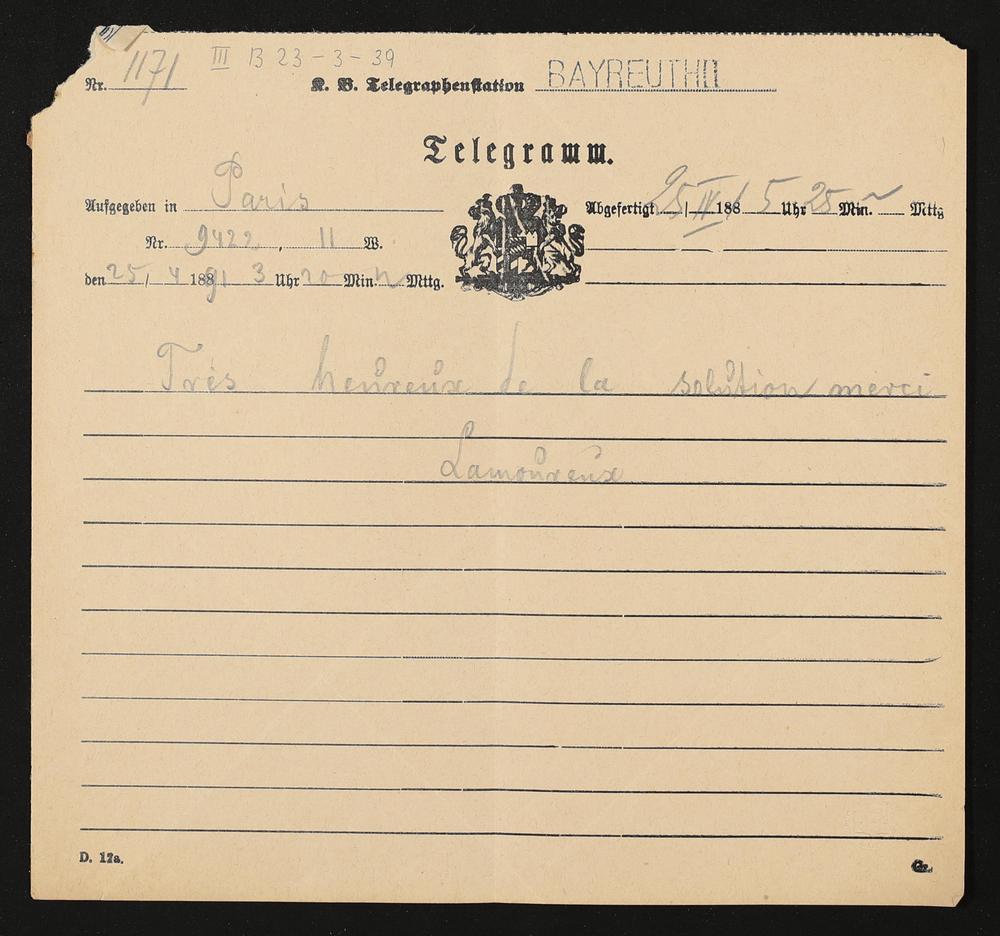 III B 23-3-39
Nr. 1171 K. B. Telegraphenstation BAYREUTH II
Telegramm.
Aufgegeben in Paris
Abgefertigt 25/IV 188 5 Uhr 25 Min. Mttg
Nr. 9422, 11 W.
den 25/4 1891 3 Uhr 20 Min. n Mttg.
Très heureux de la solution merci
Lamoureux
D. 12a.